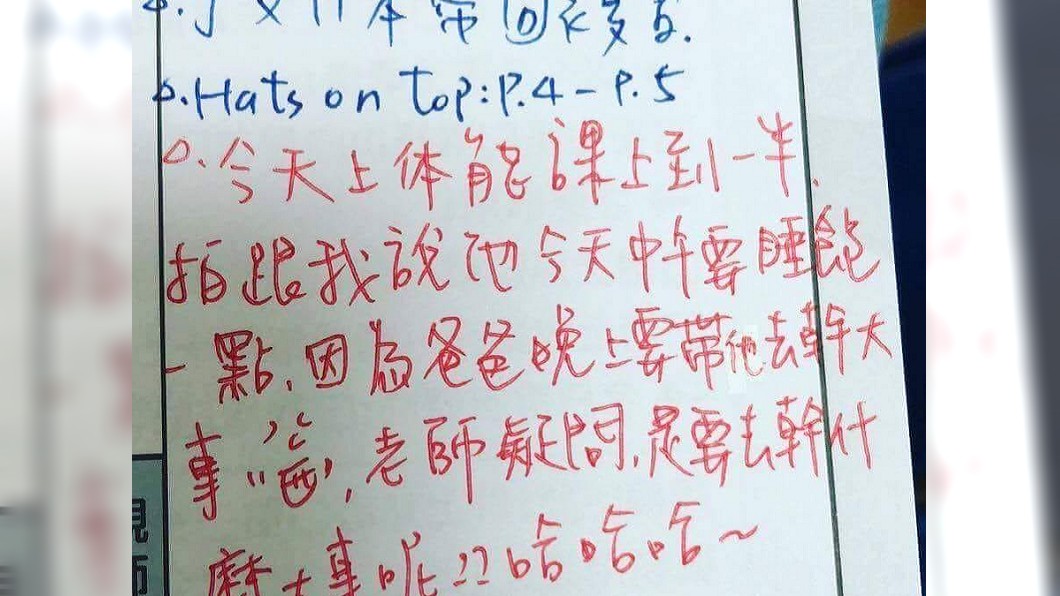 本帶回家複習.
△.Hats on Top:P.4-P.5
△.今天上体能課上到一半.
指跟我說他今天中午要睡飽
一點,因為爸爸晚上要帶他去幹大
事,老師疑問,是要去幹什
麼大事呢??哈哈哈~